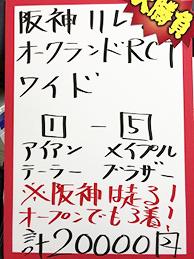 大勝負
阪神11レ
オークランドRCT
ワイド
1 - 5
アイアン メイプル
テーラー ブラザー
※阪神は走る!
オープンでも3着!
計20000円